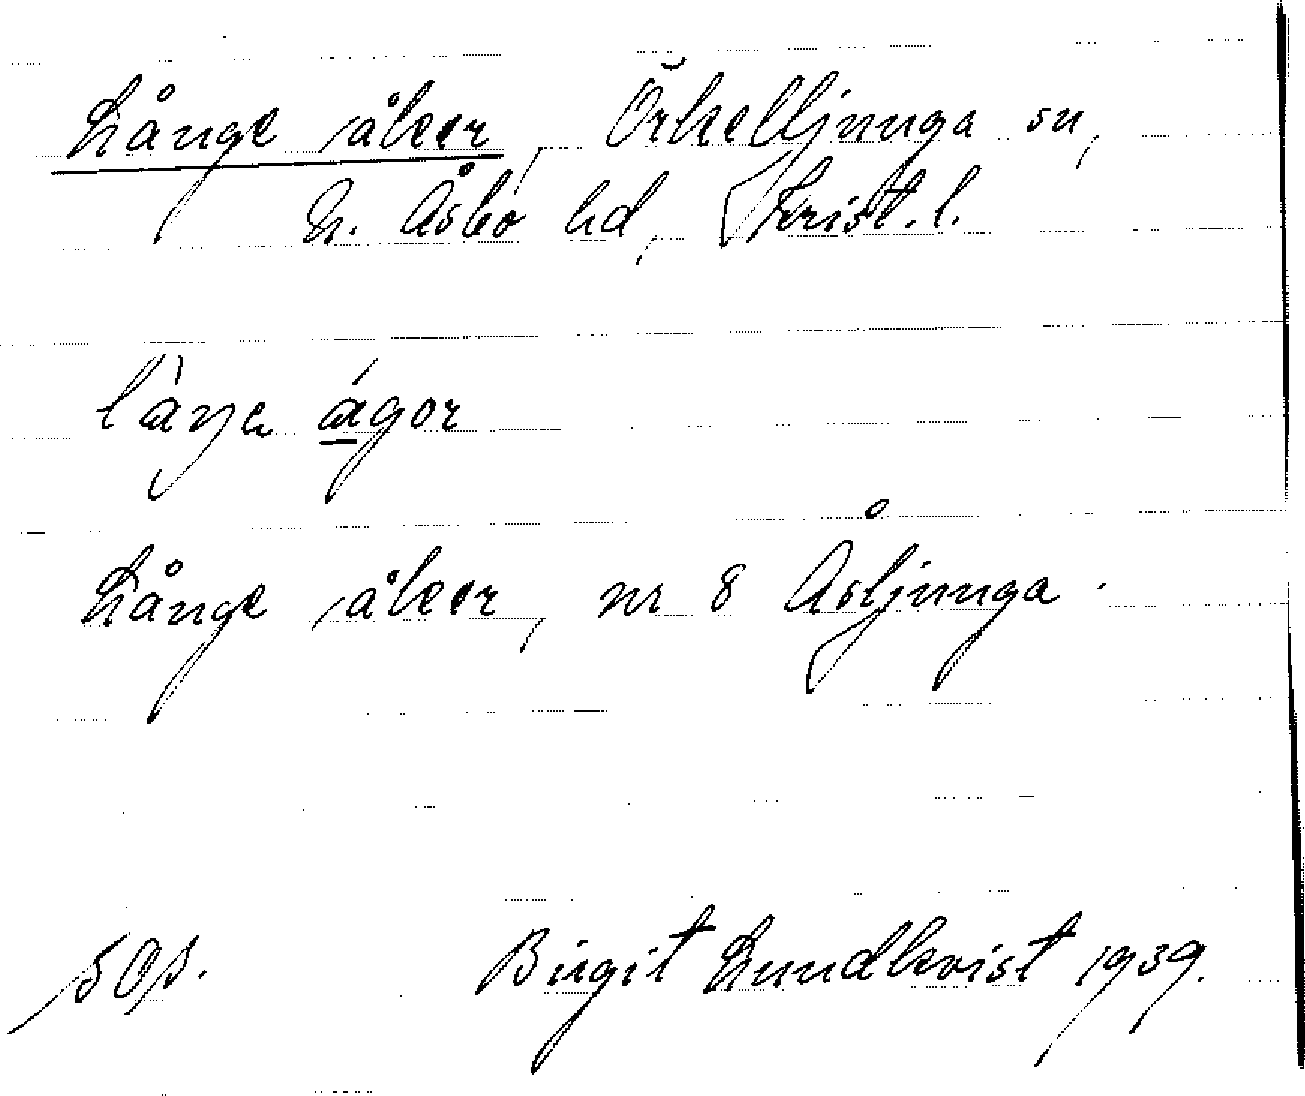 Långe åker, Örkelljunga sn,
N. Åsbo hd, Krist. l.
Långe åker, nr 8 Åsljunga.
Birgit Lundkvist 1939.